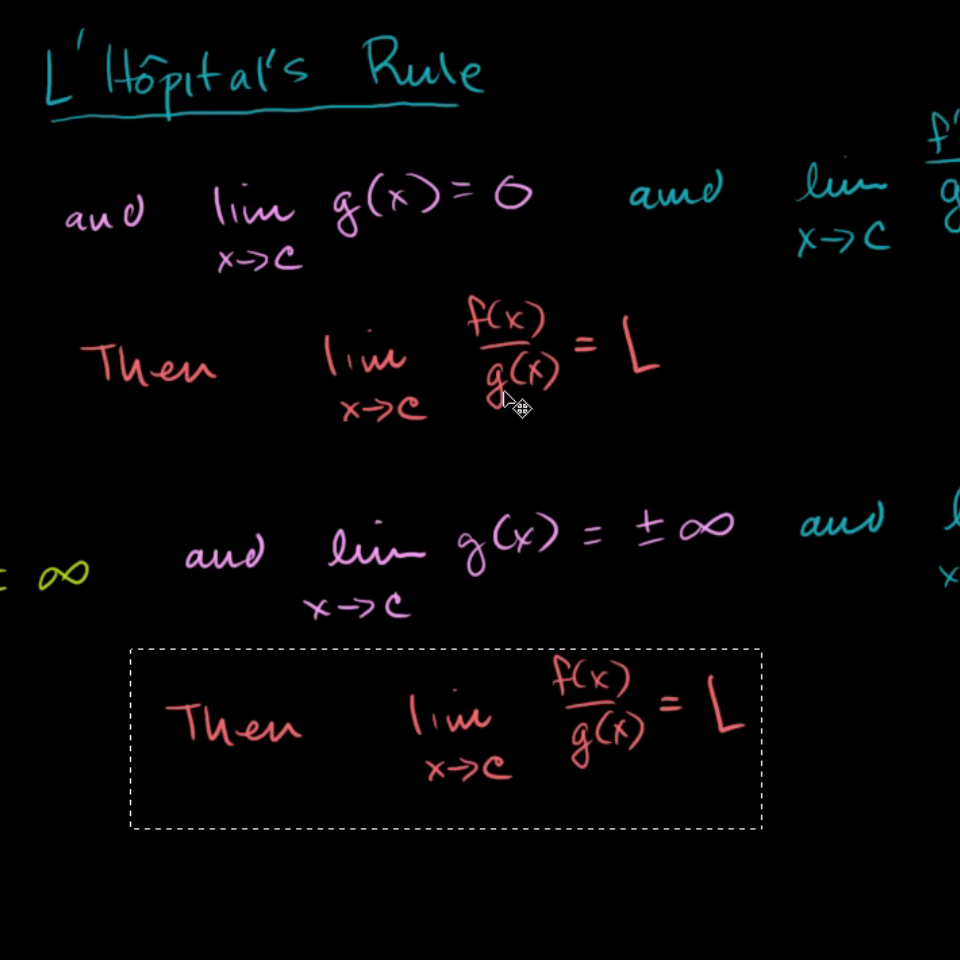 L'Hôpital's Rule
and lim x→c g(x) = 0 and lim x→c f' g
Then lim x→c f(x)/g(x) = L
= ∞ and lim x→c g(x) = ±∞ and
x
Then lim x→c f(x)/g(x) = L